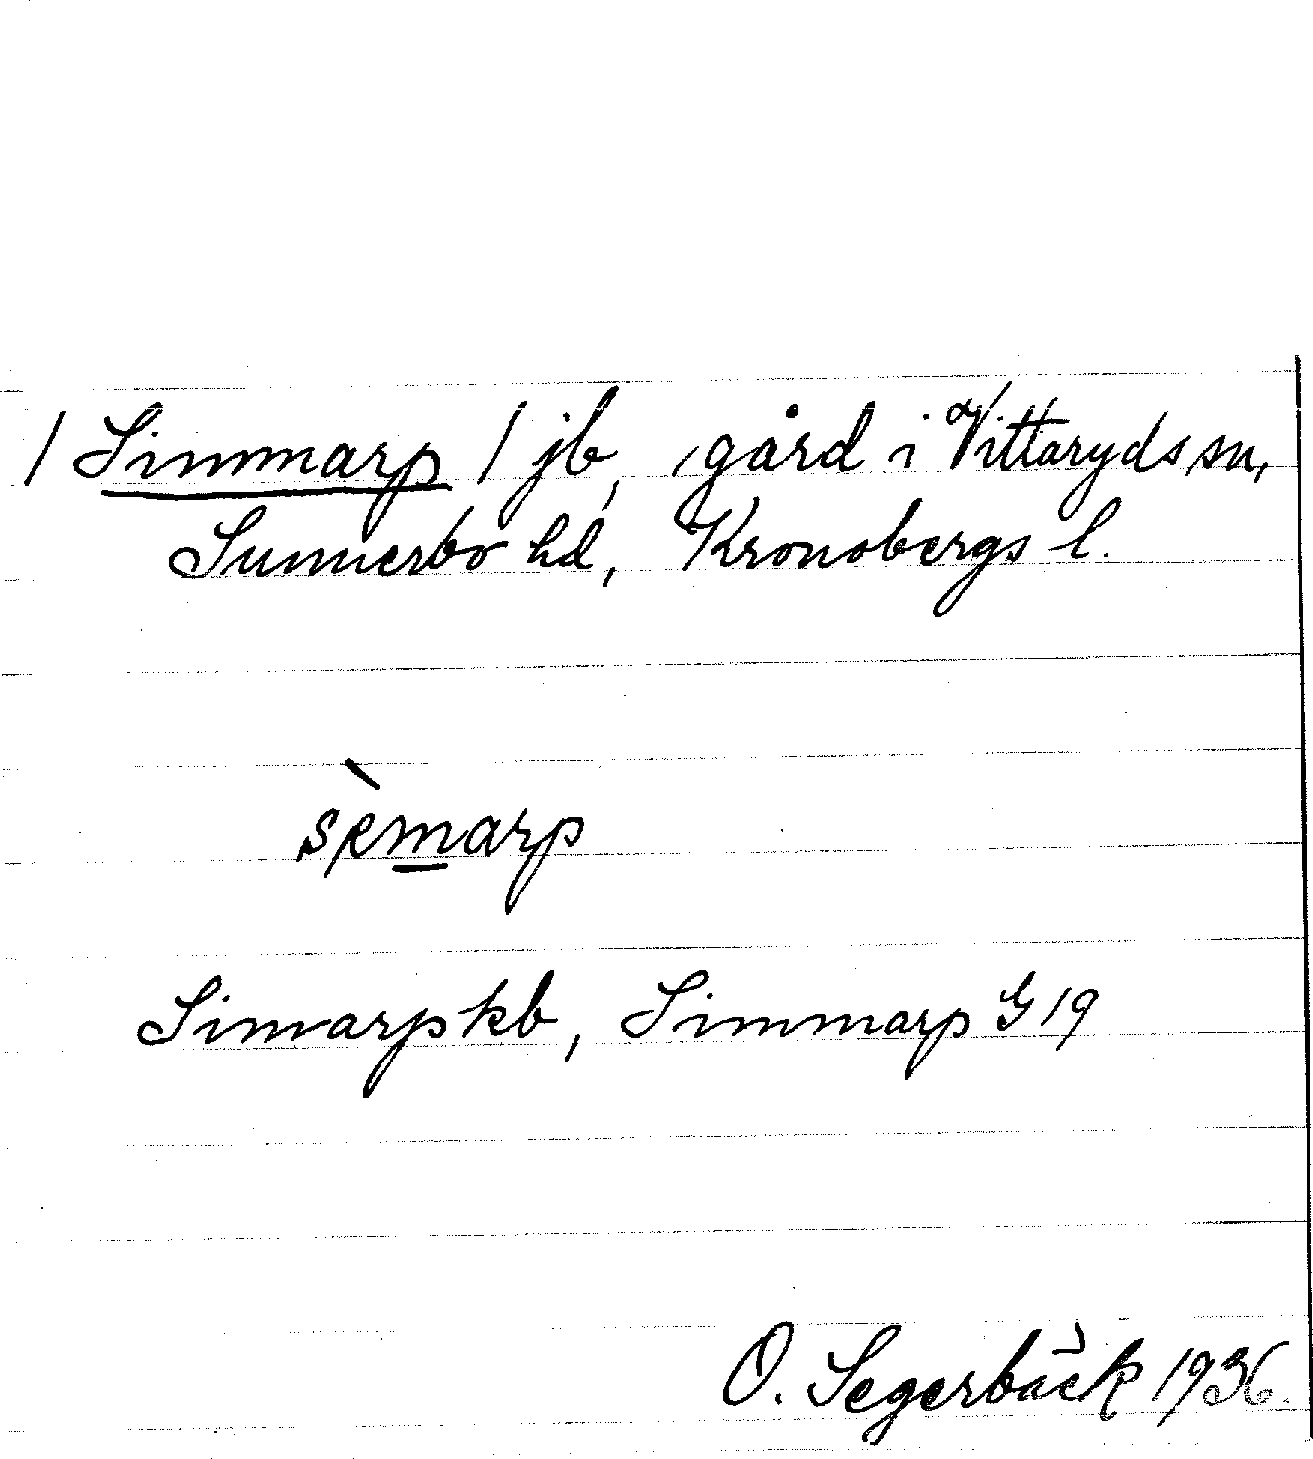 / Simmarp / jb, gård i Vittaryds sn,
Sunnerbo hd, Kronobergs l.
sèmarp
Simarp kb, Simmarp G 19
O. Segerbäck 1936.